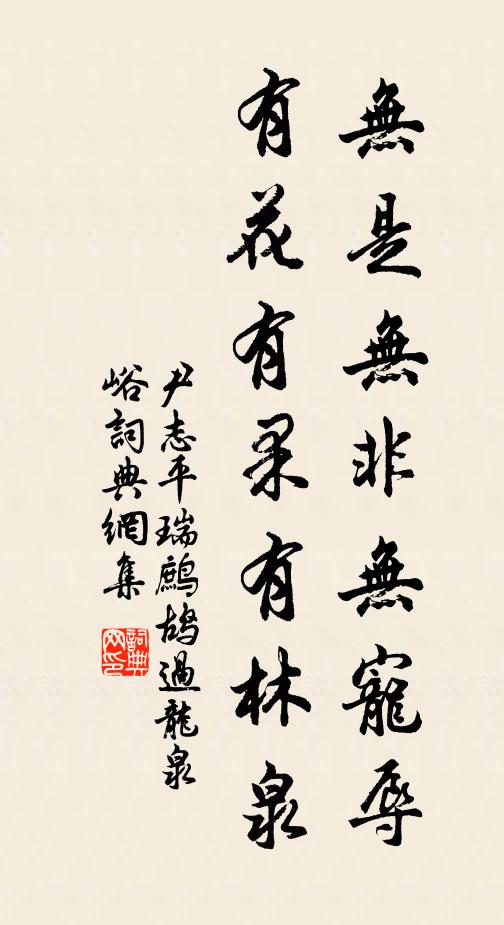 無是無非無寵辱
有花有果有林泉
尹志平瑞鷓鴣過龍泉
峪詞典網集
詞典
网印